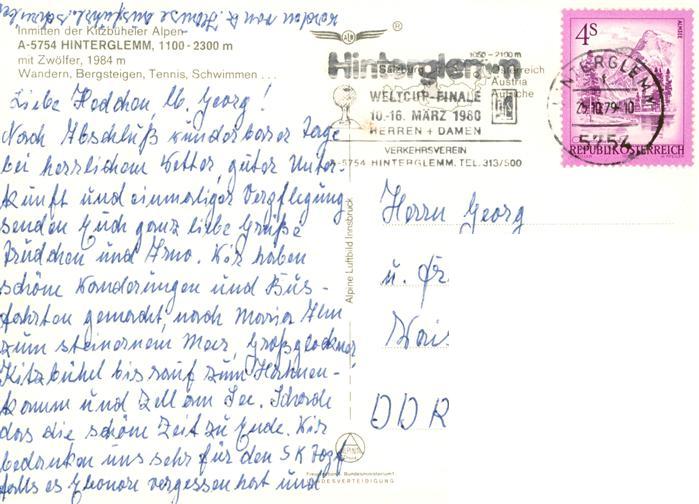 Inmitten der Kitzbüheler Alpen
A-5754 HINTERGLEMM, 1100 - 2300 m
mit Zwölfer, 1984 m
Wandern, Bergsteigen, Tennis, Schwimmen ...
Liebe Heddchen u. Georg!
Nach Abschluß wunderbarer Tage
bei herrlichem Wetter, guter Unter-
kunft und einmaliger Verpflegung
senden Euch ganz liebe Grüße
Trudchen und Arno. Wir haben
schöne Wanderungen und Bus-
fahrten gemacht, nach Maria Alm
zum steinernem Meer, Großglockner
Kitzbühel bis rauf zum Hahnen-
kamm und Zell am See. Schade
das die schöne Zeit zu Ende. Wir
bedanken uns sehr für den SK Topf
falls es Eleonore vergessen hat und
Alpine Luftbild Innsbruck
Hinterglemm
1050 - 2100 m
Salzburg
Österreich
Austria
Autriche
WELTCUP-FINALE
10.-16. MÄRZ 1980
HERREN + DAMEN
VERKEHRSVEREIN
A-5754 HINTERGLEMM. TEL. 313/500
4S
ALMSEE
HINTERGLEMM
25.10.79-10
5754
REPUBLIK ÖSTERREICH
Herrn Georg
u. Fr
DDR